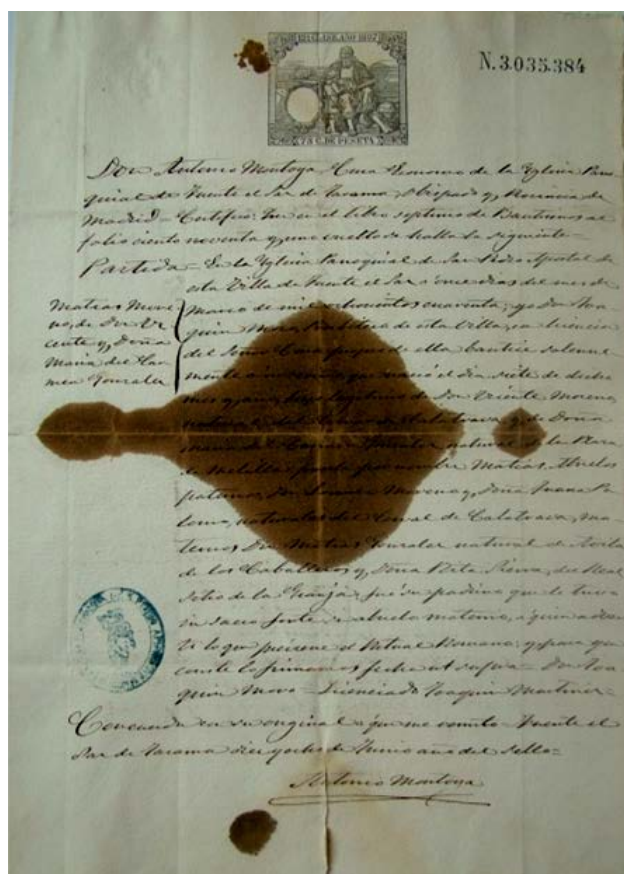 12ª CLASE. AÑO 1897
N. 3.035.384
75 C. DE PESETA
Don Antonio Montoya Cura Economo de la Yglesia Parro-
quial de Fuente el Saz de Jarama, obispado y provincia de
Madrid = Certifico: Que en el libro septimo de Bautismos al
folio ciento noventa y uno vuelto se halla la siguiente =
Partida = En la Yglesia Parroquial de San Pedro Apostol de
esta Villa de Fuente el Saz a once dias del mes de
Matias More-
no, de Dn. Vi-
cente y Doña
Maria del Car-
men Gonzalez
Marzo de mil ochocientos cuarenta; yo Don Joa-
quin Moro, de esta Villa, con licencia
del Señor Cura propio de ella bautice solemne-
mente a un niño que nació el dia siete de dicho
mes y año, hijo legitimo de Don Vicente Moreno
natural del de Calatrava, y de Doña
Maria del Carmen Gonzalez natural de la Plaza
de Melilla; por nombre Matias. Abuelos
paternos, Don Moreno y Doña Juana Pa-
lomo, naturales del Corral de Calatrava; ma-
ternos Don Matias Gonzalez natural de Avila
de los Caballeros y Doña Rita del Real
Sitio de la Granja: fué su padrino que le tuvo
in sacro fonte su abuelo materno, a quien adver-
ti lo que previene el Ritual Romano; y para que
conste lo firmamos fecha ut supra = Don Joa-
quin Moro = Licenciado Joaquin Martinez =
Concuerda con su original a que me remito. Fuente el
Saz de Jarama diez y ocho de Junio año del sello =
Antonio Montoya